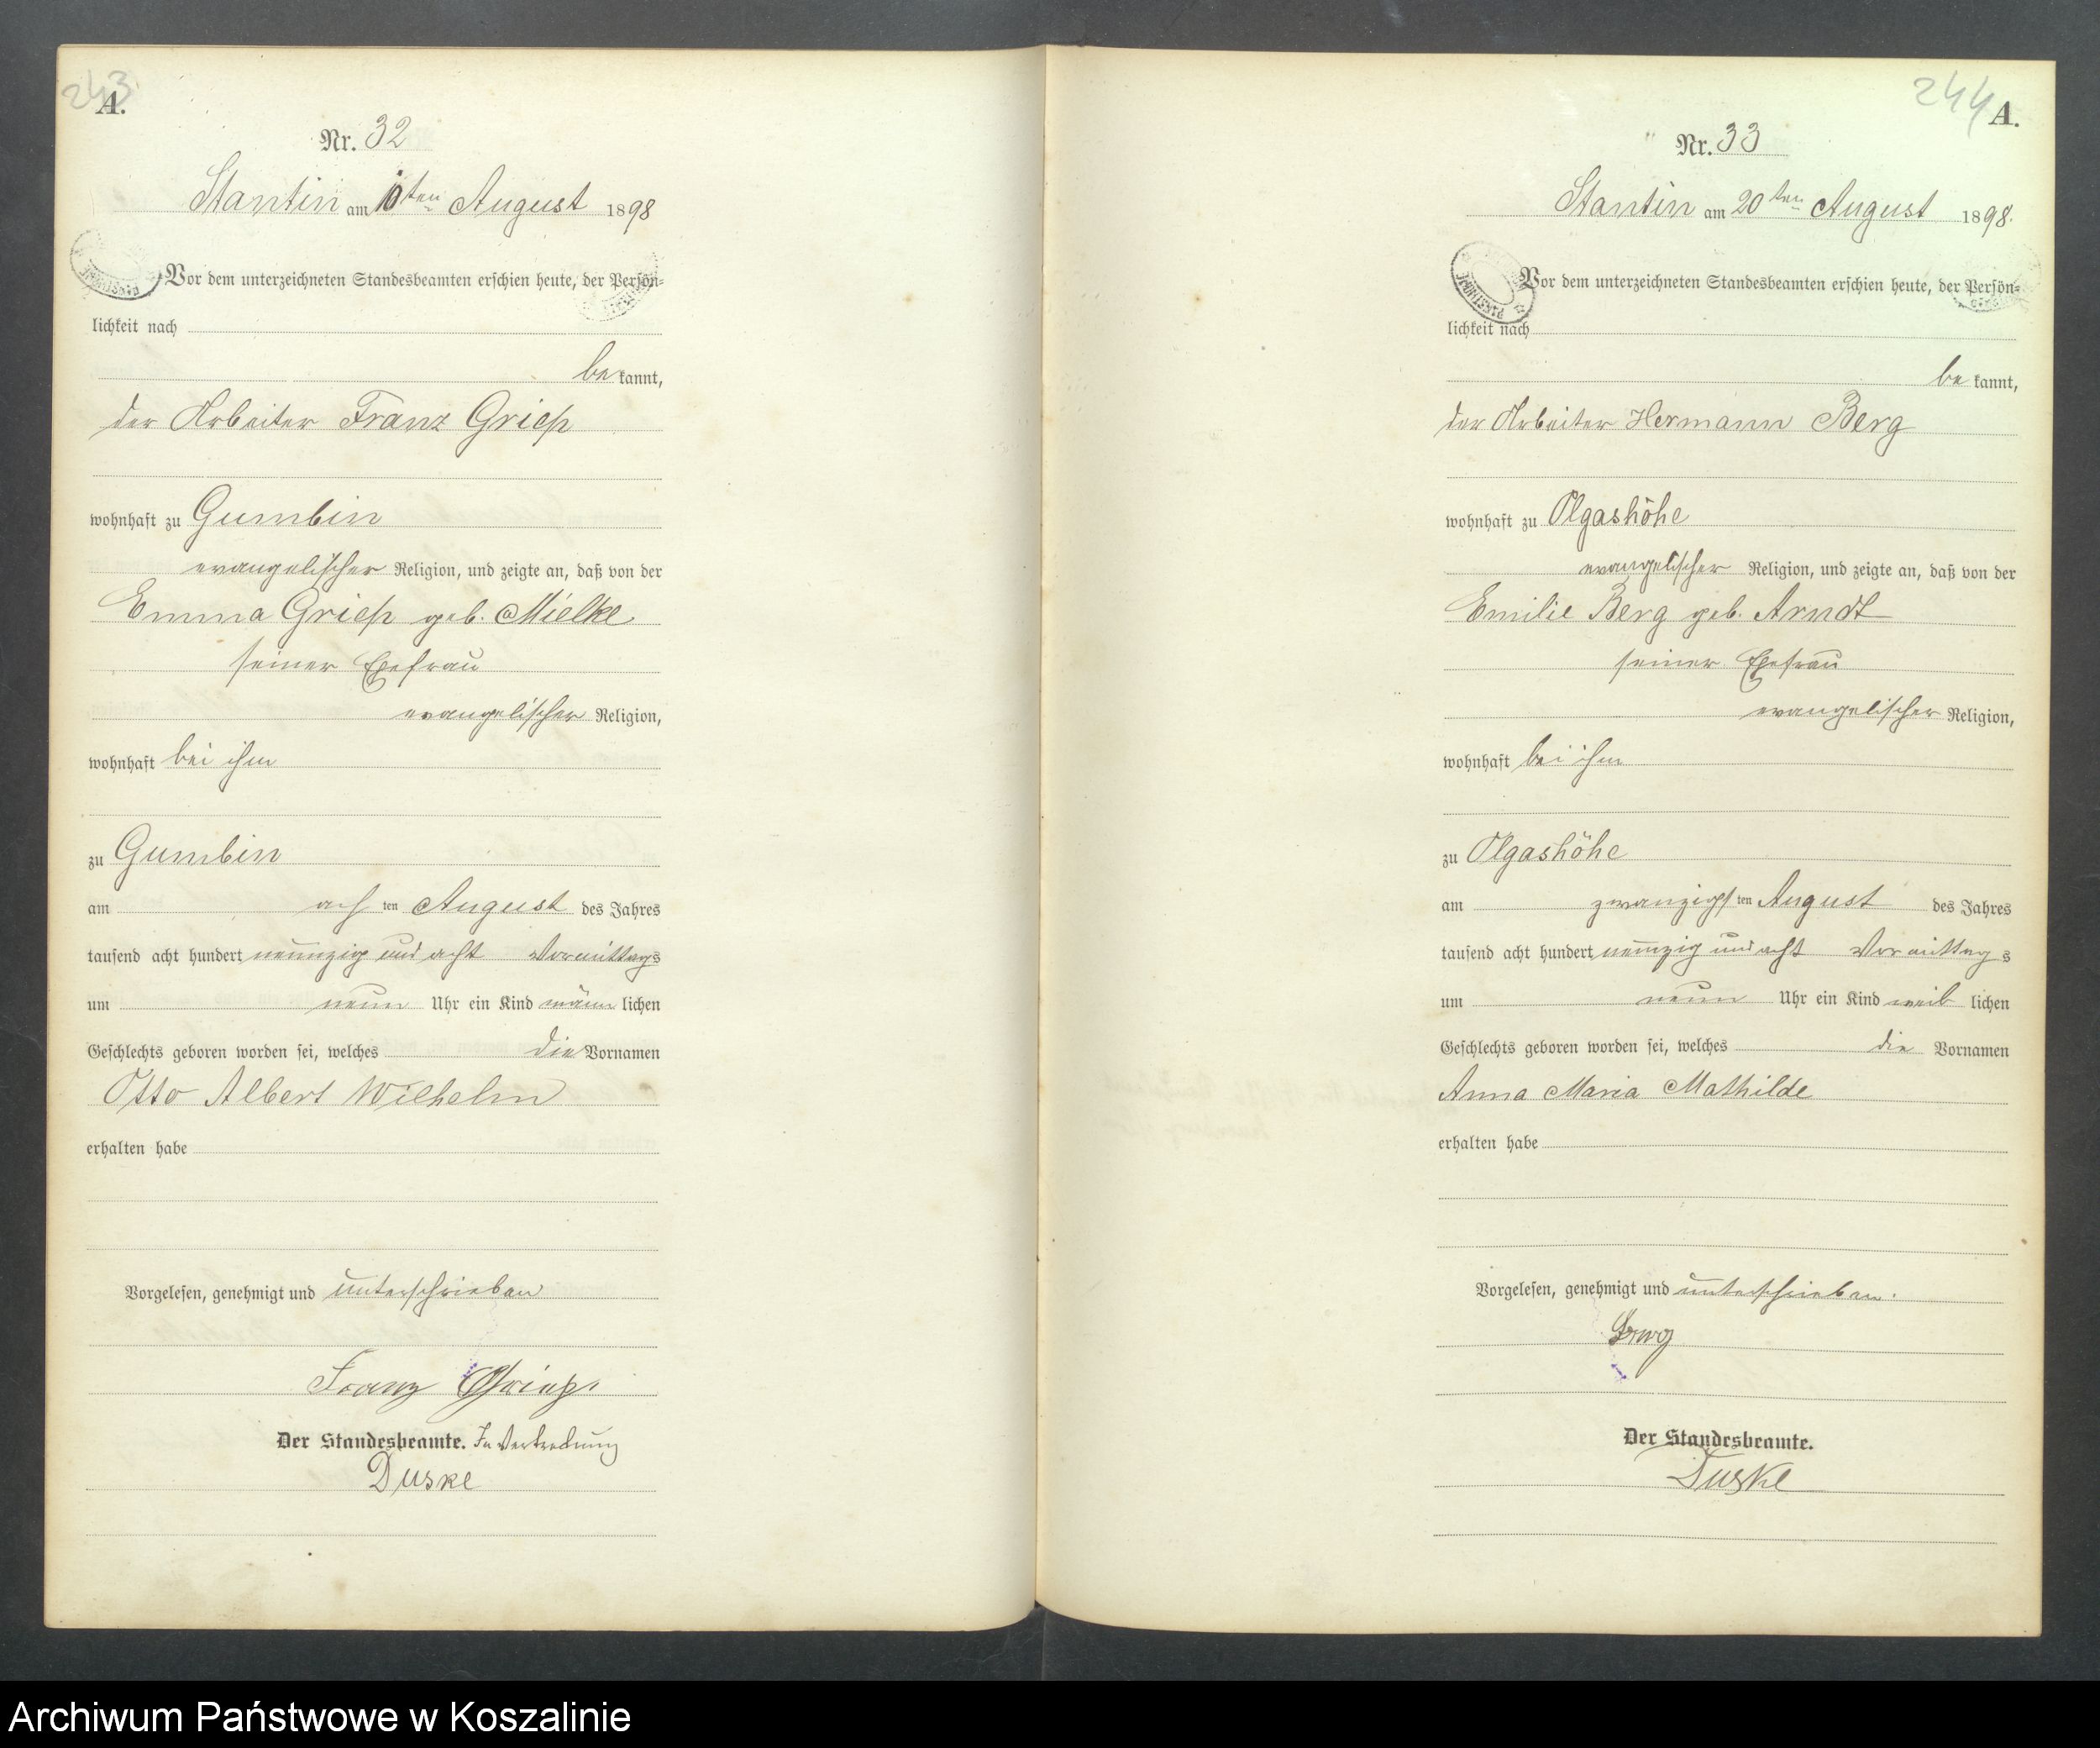 243.
A.
Nr. 32
Stantin am 10ten August 1898
Vor dem unterzeichneten Standesbeamten erschien heute, der Persön-
lichkeit nach
bekannt,
der Arbeiter Franz Griep
wohnhaft zu Gumbin
evangelischer Religion, und zeigte an, daß von der
Emma Griep geb. Mielke
seiner Ehefrau
evangelischer Religion,
wohnhaft bei ihm
zu Gumbin
am achten August des Jahres
tausend acht hundert neunzig und acht Vormittags
um neun Uhr ein Kind männlichen
Geschlechts geboren worden sei, welches die Vornamen
Otto Albert Wilhelm
erhalten habe
Vorgelesen, genehmigt und unterschrieben
Franz Griep.
Der Standesbeamte. In Vertretung
Duske
244
A.
Nr. 33
Stantin am 20ten August 1898.
Vor dem unterzeichneten Standesbeamten erschien heute, der Persön-
lichkeit nach
bekannt,
der Arbeiter Hermann Berg
wohnhaft zu Olgashöhe
evangelischer Religion, und zeigte an, daß von der
Emilie Berg geb. Arndt
seiner Ehefrau
evangelischer Religion,
wohnhaft bei ihm
zu Olgashöhe
am zwanzigsten August des Jahres
tausend acht hundert neunzig und acht Vormittags
um neun Uhr ein Kind weiblichen
Geschlechts geboren worden sei, welches die Vornamen
Anna Maria Mathilde
erhalten habe
Vorgelesen, genehmigt und unterschrieben.
Berg
Der Standesbeamte.
Duske
Archiwum Państwowe w Koszalinie